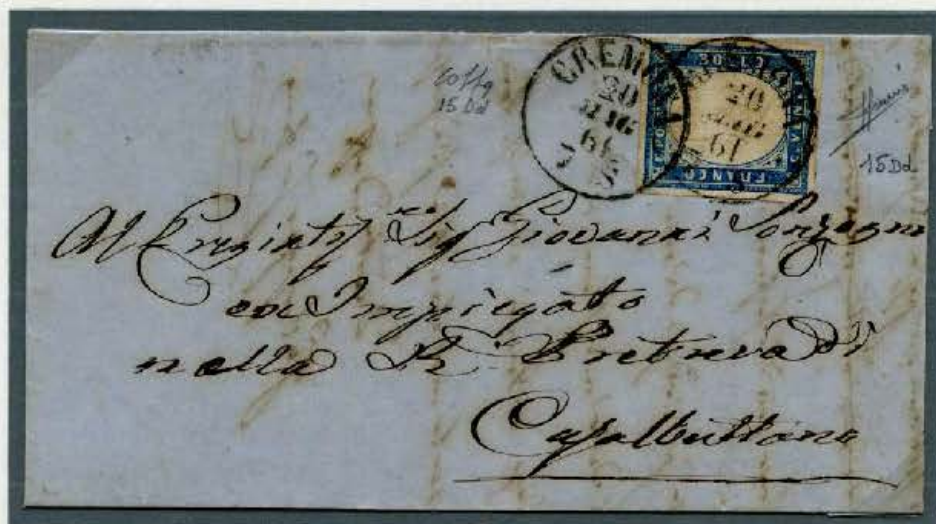 CREMONA
20
MAG
61
20
MAG
61
C. 20
FRANCO
15 Dd
15 Dd
Al Pregiatmo Sig Giovanni Sonzogni
ex Impiegato
nella R. Pretura di
Casalbuttano